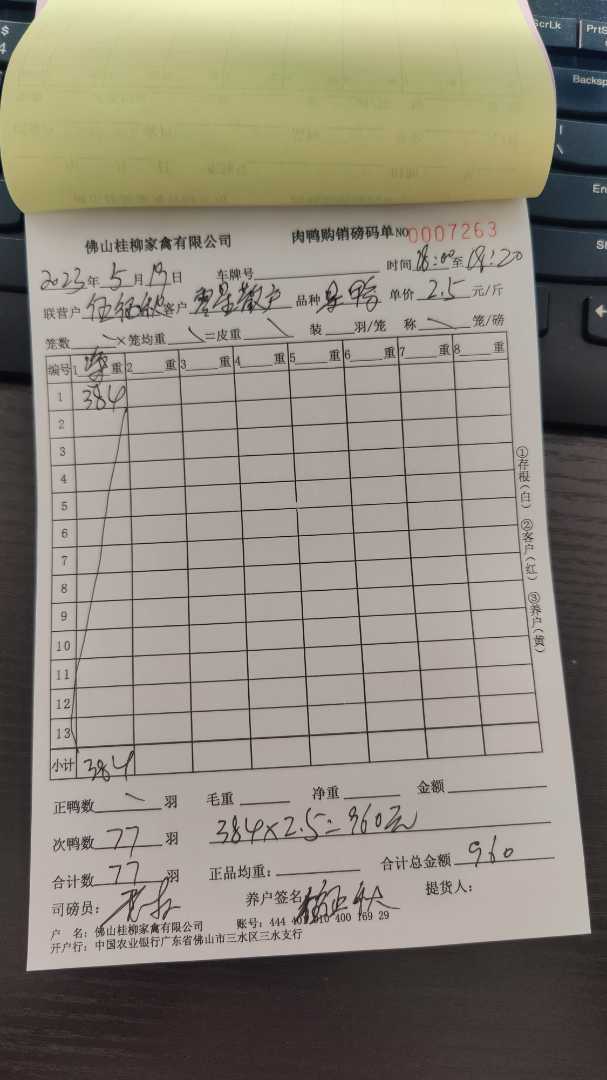 ScrLk PrtS
$
4
Backsp
佛山桂柳家禽有限公司 肉鸭购销磅码单 NO 0007263
2023年 5月 19日 车牌号 时间 18:00 至 19:20
联营户 客户 零星散户 品种 单价 2.5 元/斤
笼数 ×笼均重 =皮重 装 羽/笼 称 笼/磅
编号 1 重 2 重 3 重 4 重 5 重 6 重 7 重 8 重
1 384
2
3
4
5
6
7
8
9
10
11
12
13
小计 384
①存根(白) ②客户(红) ③养户(黄)
正鸭数 羽 毛重 净重 金额
次鸭数 77 羽 384×2.5=960元
合计数 77 羽 正品均重: 合计总金额 960
司磅员: 养户签名 提货人:
户 名: 佛山桂柳家禽有限公司 账号: 444 401 010 400 169 29
开户行: 中国农业银行广东省佛山市三水区三水支行